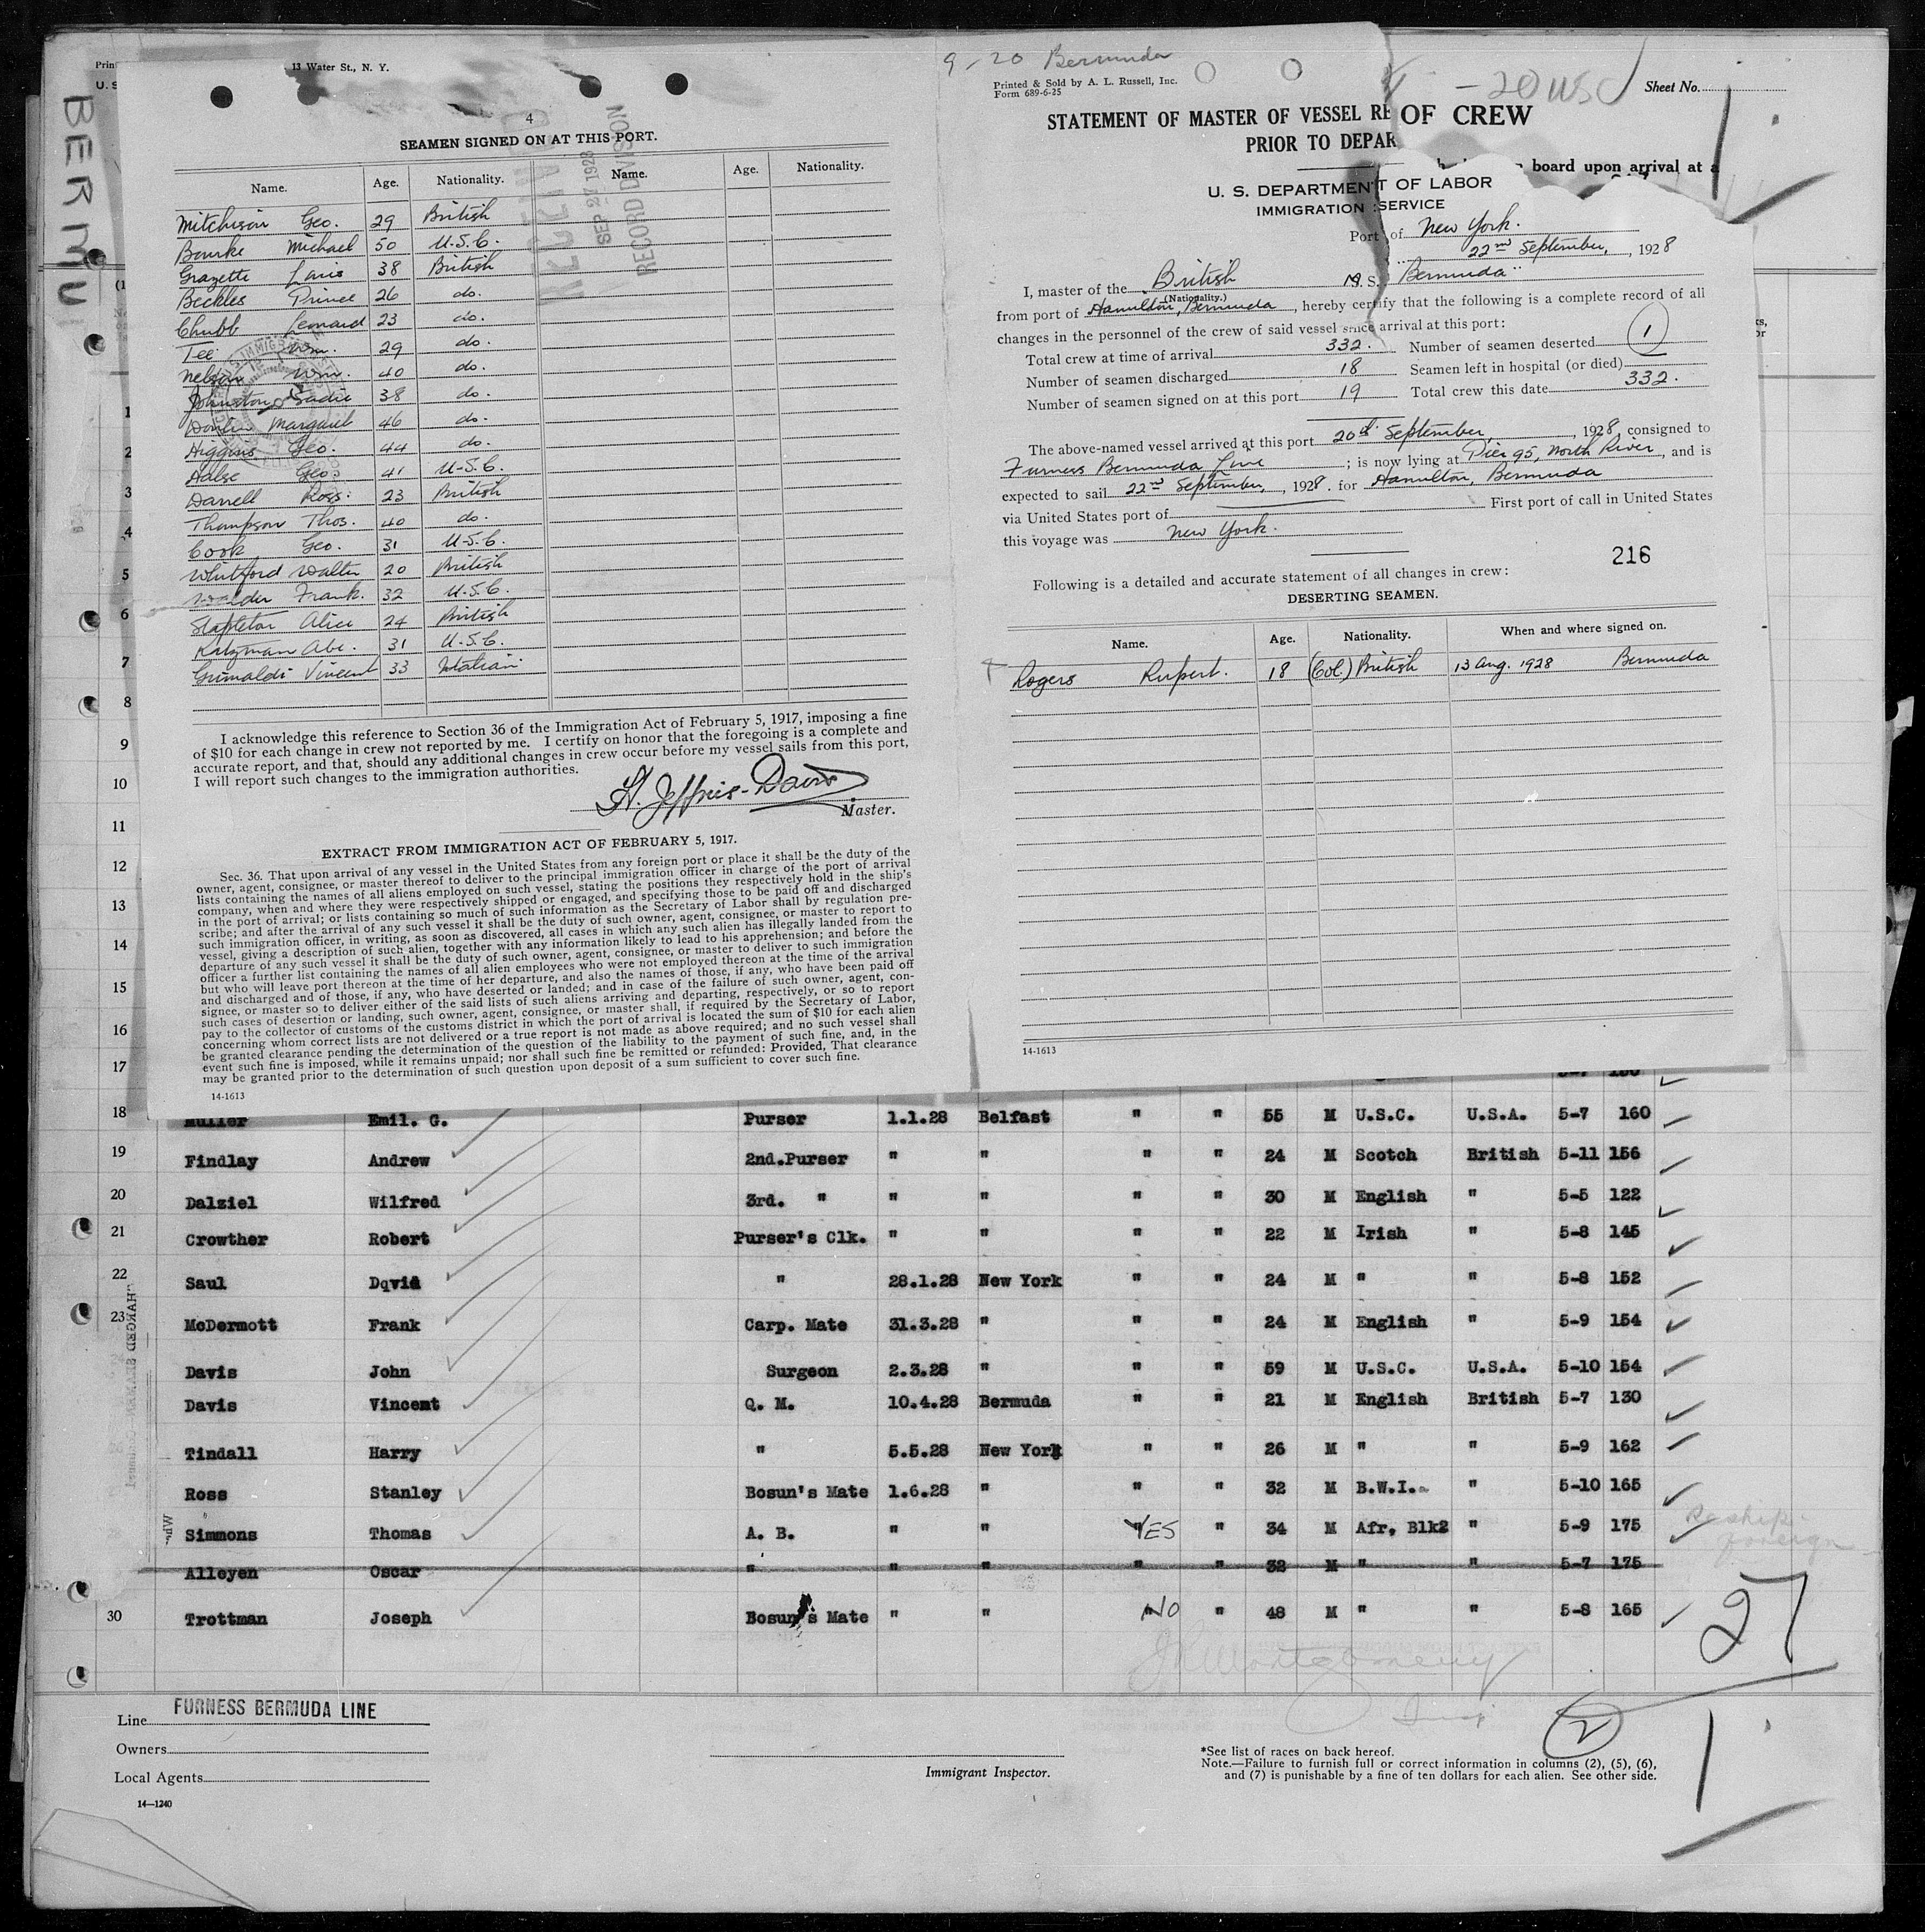 9-20 Bermuda
13 Water St., N. Y.
Printed & Sold by A. L. Russell, Inc.
Form 689-6-25
-20 USC
Sheet No.
1
BERMU
4
SEAMEN SIGNED ON AT THIS PORT.
RECEIVED
SEP 27 1928
RECORD DIVISION
Name. Age. Nationality. Name. Age. Nationality.
Mitchison Geo. 29 British
Bourke Michael 50 U.S.C.
Grazette Laris 38 British
Beckles Prince 26 do.
Chubb Leonard 23 do.
Tee Wm. 29 do.
Nelson Wm. 40 do.
Johnston Sadie 38 do.
Margaret 46 do.
Higgins Geo. 44 do.
Geo. 41 U.S.C.
Darrell Ross. 23 British
Thompson Thos. 40 do.
Cook Geo. 31 U.S.C.
Whitford Walter 20 British
Frank. 32 U.S.C.
Stapleton Alice 24 British
Katzman Abe. 31 U.S.C.
Grimaldi Vincent 33 Italian
I acknowledge this reference to Section 36 of the Immigration Act of February 5, 1917, imposing a fine
of $10 for each change in crew not reported by me. I certify on honor that the foregoing is a complete and
accurate report, and that, should any additional changes in crew occur before my vessel sails from this port,
I will report such changes to the immigration authorities.
H. Jeffries-Davis
Master.
EXTRACT FROM IMMIGRATION ACT OF FEBRUARY 5, 1917.
Sec. 36. That upon arrival of any vessel in the United States from any foreign port or place it shall be the duty of the
owner, agent, consignee, or master thereof to deliver to the principal immigration officer in charge of the port of arrival
lists containing the names of all aliens employed on such vessel, stating the positions they respectively hold in the ship's
company, when and where they were respectively shipped or engaged, and specifying those to be paid off and discharged
in the port of arrival; or lists containing so much of such information as the Secretary of Labor shall by regulation pre-
scribe; and after the arrival of any such vessel it shall be the duty of such owner, agent, consignee, or master to report to
such immigration officer, in writing, as soon as discovered, all cases in which any such alien has illegally landed from the
vessel, giving a description of such alien, together with any information likely to lead to his apprehension; and before the
departure of any such vessel it shall be the duty of such owner, agent, consignee, or master to deliver to such immigration
officer a further list containing the names of all alien employees who were not employed thereon at the time of the arrival
but who will leave port thereon at the time of her departure, and also the names of those, if any, who have been paid off
and discharged and of those, if any, who have deserted or landed; and in case of the failure of such owner, agent, con-
signee, or master so to deliver either of the said lists of such aliens arriving and departing, respectively, or so to report
such cases of desertion or landing, such owner, agent, consignee, or master shall, if required by the Secretary of Labor,
pay to the collector of customs of the customs district in which the port of arrival is located the sum of $10 for each alien
concerning whom correct lists are not delivered or a true report is not made as above required; and no such vessel shall
be granted clearance pending the determination of the question of the liability to the payment of such fine, and, in the
event such fine is imposed, while it remains unpaid; nor shall such fine be remitted or refunded: Provided, That clearance
may be granted prior to the determination of such question upon deposit of a sum sufficient to cover such fine.
14-1613
STATEMENT OF MASTER OF VESSEL RE OF CREW
PRIOR TO DEPAR
board upon arrival at a
U. S. DEPARTMENT OF LABOR
IMMIGRATION SERVICE
Port of New York.
22nd September, , 1928
I, master of the British M. S. "Bermuda"
(Nationality.)
from port of Hamilton, Bermuda, hereby certify that the following is a complete record of all
changes in the personnel of the crew of said vessel since arrival at this port:
Total crew at time of arrival 332. Number of seamen deserted 1
Number of seamen discharged 18 Seamen left in hospital (or died)
Number of seamen signed on at this port 19 Total crew this date 332.
The above-named vessel arrived at this port 20th September, 1928, consigned to
Furness Bermuda Line ; is now lying at Pier 95, North River, and is
expected to sail 22nd September, , 1928. for Hamilton, Bermuda
via United States port of First port of call in United States
this voyage was New York.
216
Following is a detailed and accurate statement of all changes in crew:
DESERTING SEAMEN.
Name. Age. Nationality. When and where signed on.
Rogers Rupert. 18 (Col.) British 13 Aug. 1928 Bermuda
14-1613
1
2
3
4
5
6
7
8
9
10
11
12
13
14
15
16
17
18 Muller Emil. G. Purser 1.1.28 Belfast " " 55 M U.S.C. U.S.A. 5-7 160
19 Findlay Andrew 2nd.Purser " " " " 24 M Scotch British 5-11 156
20 Dalziel Wilfred 3rd. " " " " " 30 M English " 5-5 122
21 Crowther Robert Purser's Clk. " " " " 22 M Irish " 5-8 145
22 Saul Dqvid " 28.1.28 New York " " 24 M " " 5-8 152
23 McDermott Frank Carp. Mate 31.3.28 " " " 24 M English " 5-9 154
Davis John Surgeon 2.3.28 " " " 59 M U.S.C. U.S.A. 5-10 154
Davis Vincent Q. M. 10.4.28 Bermuda " " 21 M English British 5-7 130
Tindall Harry " 5.5.28 New York " " 26 M " " 5-9 162
Ross Stanley Bosun's Mate 1.6.28 " " " 32 M B.W.I. " 5-10 165
Simmons Thomas A. B. " " YES " 34 M Afr. Blk2 " 5-9 175 Reship foreign
Alleyen Oscar " " " " " 32 M " " 5-7 175
30 Trottman Joseph Bosun's Mate " " NO " 48 M " " 5-8 165
27
Line FURNESS BERMUDA LINE
Owners
Local Agents
14—1240
Immigrant Inspector.
2
1
*See list of races on back hereof.
Note.—Failure to furnish full or correct information in columns (2), (5), (6),
and (7) is punishable by a fine of ten dollars for each alien. See other side.